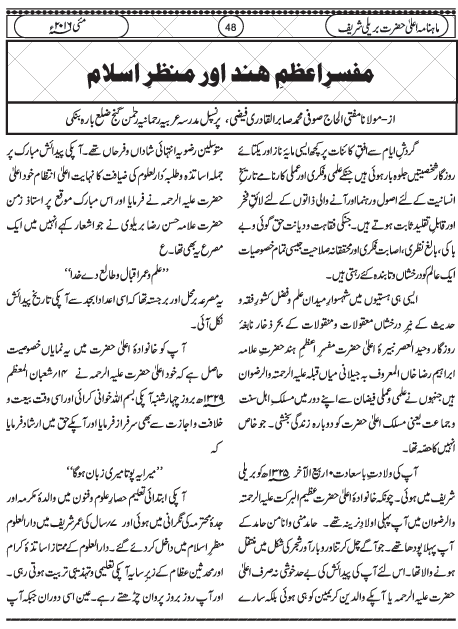 ماہنامہ اعلیٰ حضرت بریلی شریف
48
مئی ۲۰۱۶ء
مفسرِ اعظمِ ہند اور منظرِ اسلام
از- مولانا مفتی الحاج صوفی محمد صابر القادری فیضی، پرنسپل مدرسہ عربیہ رحمانیہ رحمٰن گنج ضلع بارہ بنکی
گردشِ ایام سے افق کائنات پر کچھ ایسی مایۂ ناز اور یکتائے
روزگار شخصیتیں جلوہ بار ہوئی ہیں جنکے علمی و فکری اور عملی کارنامے تاریخ
انسانیت کے لئے اصول اور رہنما اور آنے والی ذاتوں کے لئے لائقِ فخر
اور قابلِ تقلید ثابت ہوتے ہیں۔ جنکی فقاہت و دیانت حق گوئی و بے
باکی، بالغ نظری، اصابت فکری اور محققانہ صلاحیت جیسی تمام خصوصیات
ایک عالم کو درخشاں و تابندہ کئے رہتی ہیں۔
ایسی ہی ہستیوں میں شہسوار میدان علم و فضل کشور فقہ و
حدیث کے نیر درخشاں معقولات و منقولات کے بحر ذخار نابغۂ
روزگار وحید العصر نبیرۂ اعلیٰ حضرت مفسر اعظم ہند حضرت علامہ
ابراہیم رضا خاں المعروف بہ جیلانی میاں قبلہ علیہ الرحمۃ والرضوان
ہیں جنہوں نے علمی و عملی فیضان سے اپنے دور میں مسلک اہل سنت
و جماعت یعنی مسلک اعلیٰ حضرت کو دوبارہ زندگی بخشی۔ جو خاص
انہیں کا حصہ تھا۔
آپ کی ولادت باسعادت ۱۰ ربیع الآخر ۱۳۲۵ھ کو بریلی
شریف میں ہوئی۔ چونکہ خانوادۂ اعلیٰ حضرت عظیم البرکت علیہ الرحمۃ
والرضوان میں آپ پہلی اولاد نرینہ تھے۔ حامد منی وانا من حامد کے
آپ پہلا پودھا تھے۔ جو آگے چل کر تناور و بارآور شجر کی شکل میں منتقل
ہونے والا تھا۔ اس لئے آپ کی پیدائش کی بے حد خوشی نہ صرف اعلیٰ
حضرت علیہ الرحمہ یا آپکے والدین کریمین کو ہی ہوئی بلکہ سارے
متوسلین رضویہ انتہائی شاداں و فرحاں تھے۔ آپکی پیدائش مبارک پر
جملہ اساتذہ و طلبہ دارالعلوم کی ضیافت کا نہایت اعلیٰ انتظام خود اعلیٰ
حضرت علیہ الرحمہ نے فرمایا اور اس مبارک موقع پر استاذ زمن
علامہ حسن رضا بریلوی نے جو اشعار کہے انہیں میں ایک
مصرع یہ بھی تھا۔ ع
’’علم و عمر اقبال و طالع دے خدا‘‘
یہ مصرعہ برمحل اور برجستہ تھا کہ اسی اعداد ابجد سے آپکی تاریخ پیدائش
نکل آئی۔
آپ کو خانوادۂ اعلیٰ حضرت میں یہ نمایاں خصوصیت
حاصل ہے کہ خود اعلیٰ حضرت علیہ الرحمہ نے ۱۴ شعبان المعظم
۱۳۲۹ھ بروز چہار شنبہ آپکی بسم اللہ خوانی کرائی اور اسی وقت بیعت و
خلافت و اجازت سے بھی سرفراز فرمایا اور آپکے حق میں ارشاد فرمایا
کہ
’’میرا یہ پوتا میری زبان ہوگا‘‘
آپکی ابتدائی تعلیم حصار علوم و فنون میں والدۂ مکرمہ اور
جدۂ محترمہ کی نگرانی میں ہوئی اور ۷ سال کی عمر شریف میں دارالعلوم
منظر اسلام میں داخل کر دئے گئے۔ دارالعلوم کے ممتاز اساتذۂ کرام
اور محدثین عظام کے زیر سایہ آپکی تعلیمی و تہذیبی تربیت ہوتی رہی۔
اور آپ روز بروز پروان چڑھتے رہے۔ عین اسی دوران جبکہ آپ